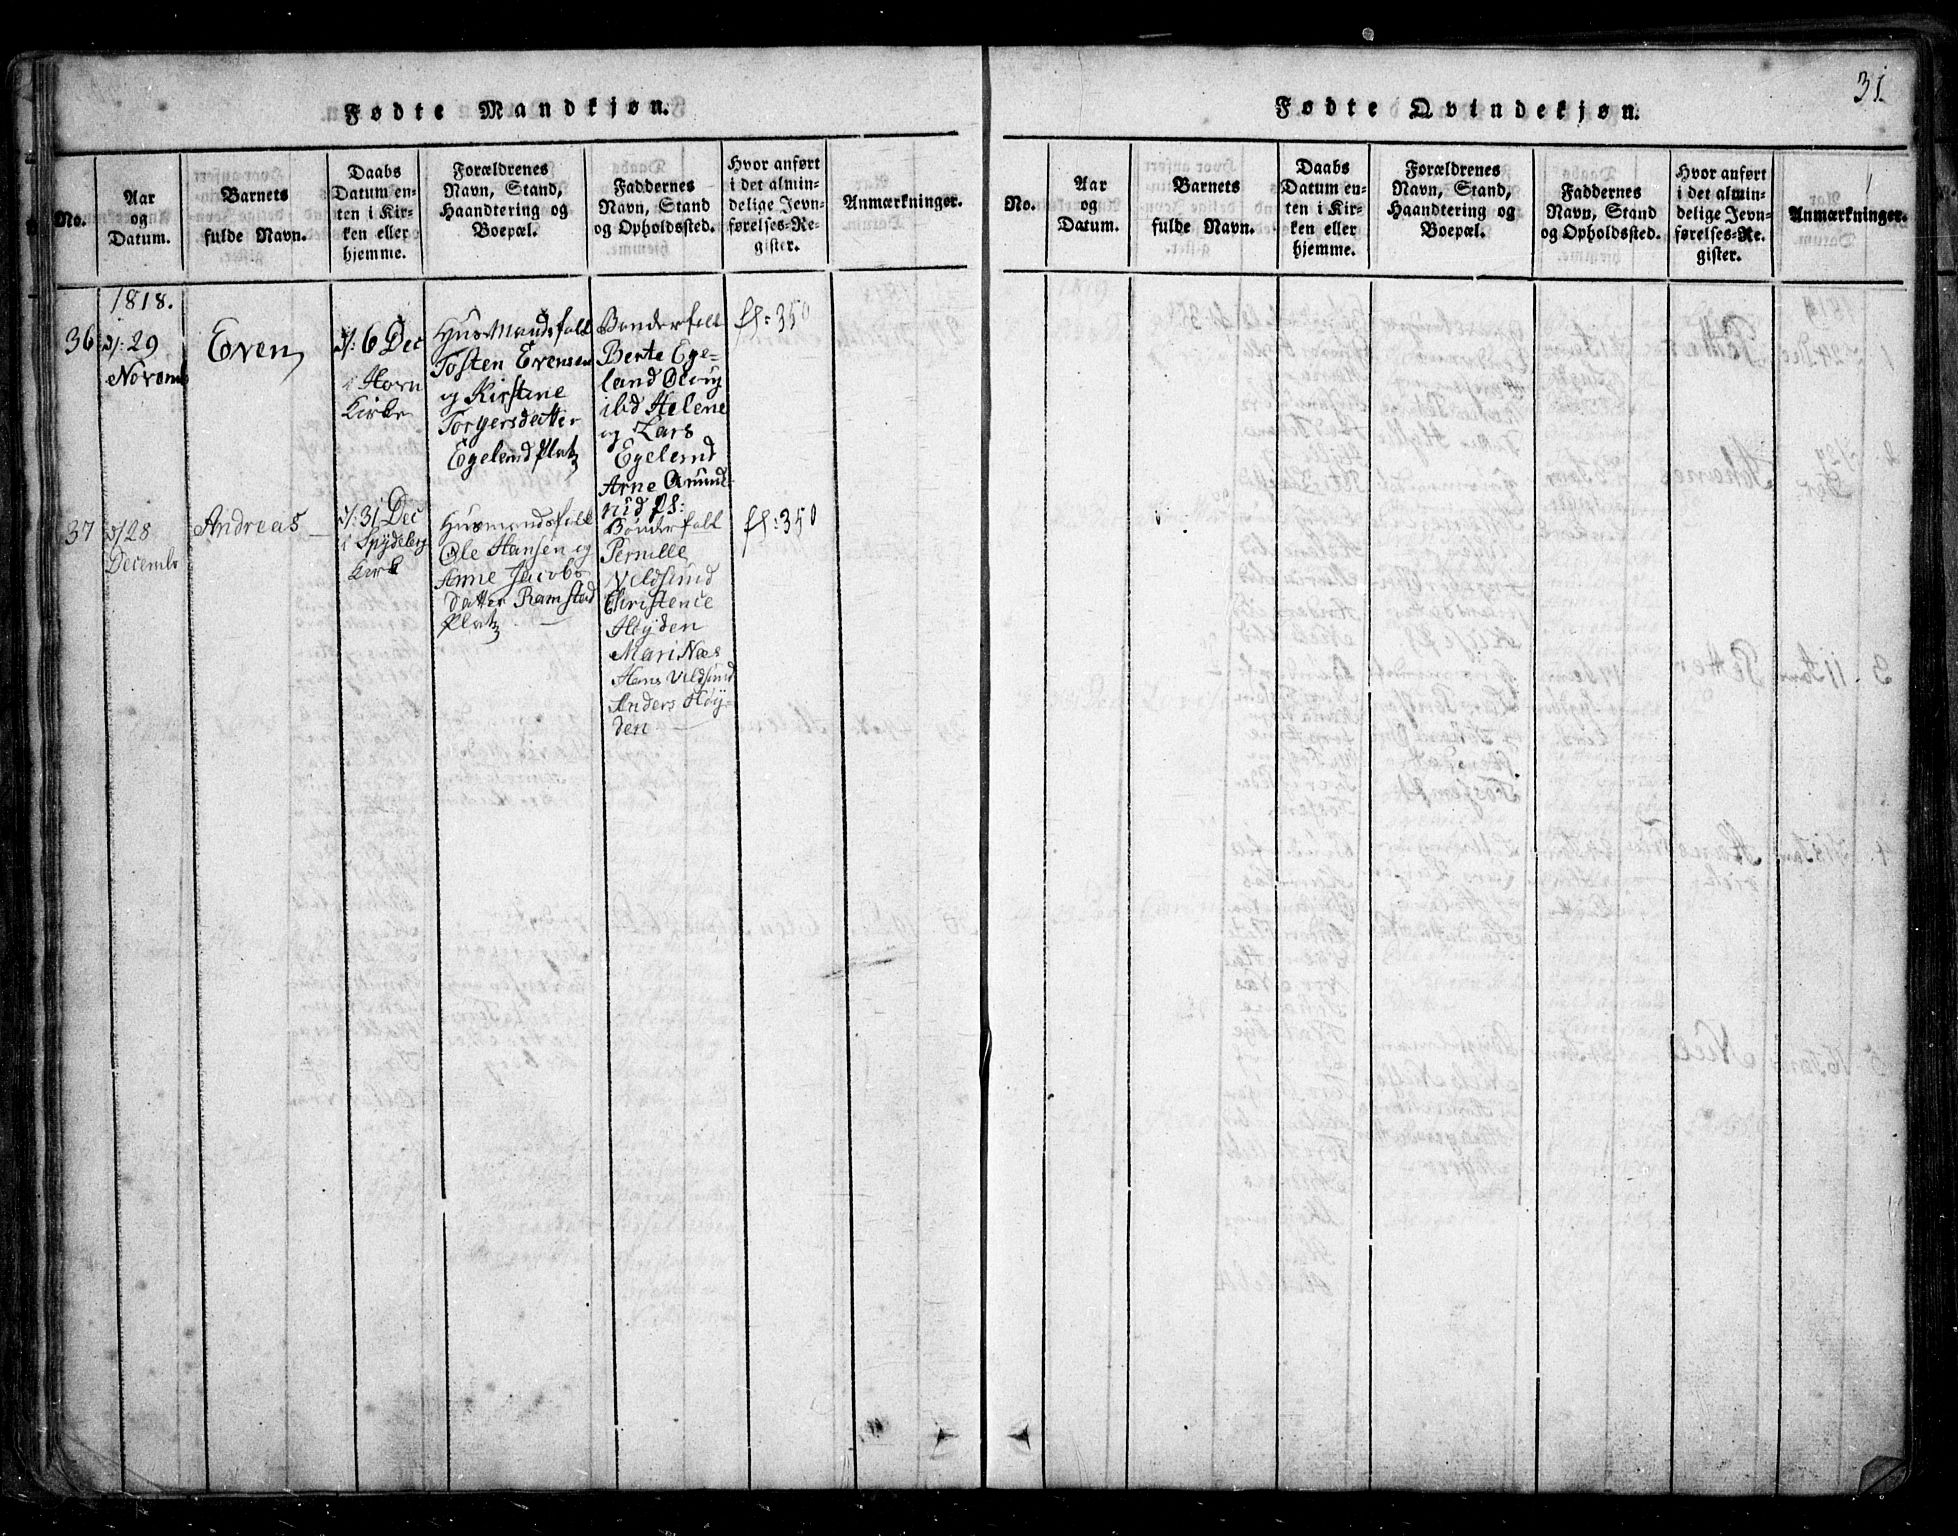 31.
Fødte Mandkjøn.
No.
Aar
og
Datum.
Barnets
fulde Navn.
Daabs
Datum en-
ten i Kir-
ken eller
hjemme.
Forældrenes
Navn, Stand,
Haandtering og
Boepæl.
Faddernes
Navn, Stand
og Opholdssted.
Hvor anført
i det almin-
delige Jevn-
førelses-Re-
gister.
Anmærkninger.
1818.
36
d/: 29
Novemb
Even
d/: 6 Dec
i Horn
Kirke
Husmandsfolk
Tosten Evensen
og Kirstine
Torgersdatter
Egeland Platz
Bønderfolk
Berte Ege-
land Oloug
ibd Helene
og Lars
Egeland
Arne
fl: 350
37
d/28
Decembr
Andreas
d/: 31 Dec
i Spydeberg
Kirk
Husmandsfolk
Ole Hansen og
Anne Jacobs
datter Ramstad
Platz
Bønderfolk
Pernille
Vildsund
Christence
Høyden
Mari Næs
Hans Vildsund
Anders Høy-
den
fl: 350
Fødte Qvindekjøn.
No.
Aar
og
Datum.
Barnets
fulde Navn.
Daabs
Datum en-
ten i Kir-
ken eller
hjemme.
Forældrenes
Navn, Stand,
Haandtering og
Boepæl.
Faddernes
Navn, Stand
og Opholdssted.
Hvor anført
i det almin-
delige Jevn-
førelses-Re-
gister.
Anmærkninger.